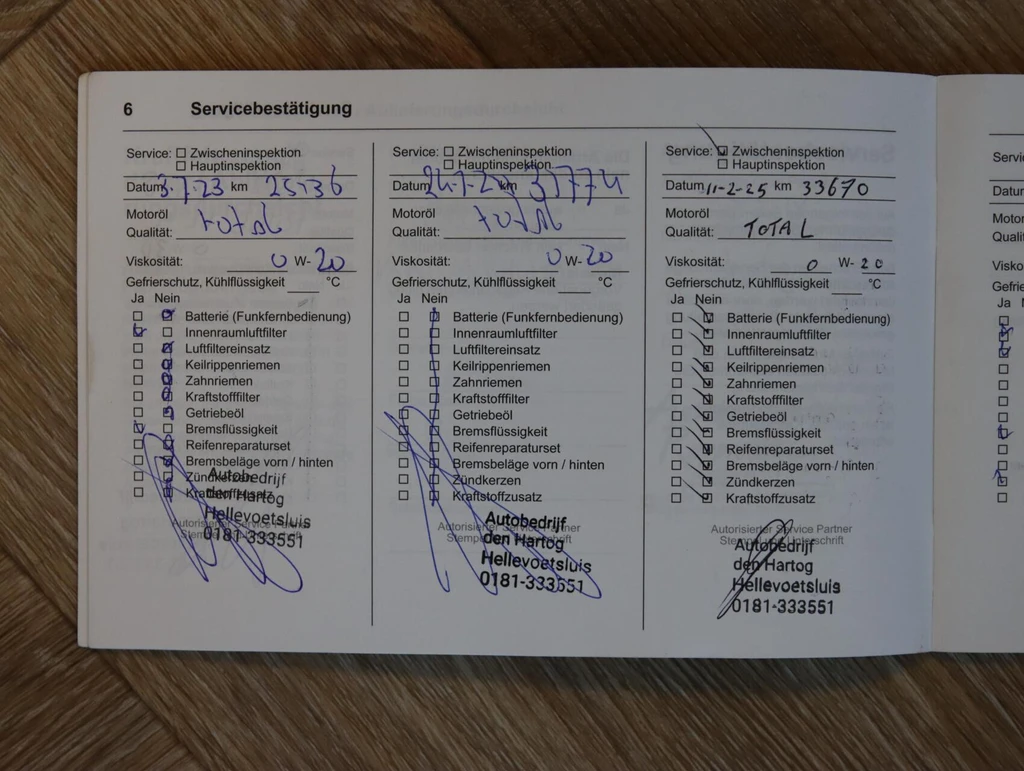 6 Servicebestätigung
Service: Zwischeninspektion
Hauptinspektion
Datum 3-7-23 km 25736
Motoröl
Qualität: total
Viskosität: 0 W-20
Gefrierschutz, Kühlflüssigkeit °C
Ja Nein
Batterie (Funkfernbedienung)
Innenraumluftfilter
Luftfiltereinsatz
Keilrippenriemen
Zahnriemen
Kraftstofffilter
Getriebeöl
Bremsflüssigkeit
Reifenreparaturset
Bremsbeläge vorn / hinten
Zündkerzen
Kraftstoffzusatz
Autorisierter Service Partner
Autobedrijf
den Hartog
Hellevoetsluis
0181-333551
Service: Zwischeninspektion
Hauptinspektion
Datum km
Motoröl
Qualität: total
Viskosität: 0 W-20
Gefrierschutz, Kühlflüssigkeit °C
Ja Nein
Batterie (Funkfernbedienung)
Innenraumluftfilter
Luftfiltereinsatz
Keilrippenriemen
Zahnriemen
Kraftstofffilter
Getriebeöl
Bremsflüssigkeit
Reifenreparaturset
Bremsbeläge vorn / hinten
Zündkerzen
Kraftstoffzusatz
Autorisierter Service Partner
Autobedrijf
den Hartog
Hellevoetsluis
0181-333551
Service: Zwischeninspektion
Hauptinspektion
Datum 11-2-25 km 33670
Motoröl
Qualität: TOTAL
Viskosität: 0 W-20
Gefrierschutz, Kühlflüssigkeit °C
Ja Nein
Batterie (Funkfernbedienung)
Innenraumluftfilter
Luftfiltereinsatz
Keilrippenriemen
Zahnriemen
Kraftstofffilter
Getriebeöl
Bremsflüssigkeit
Reifenreparaturset
Bremsbeläge vorn / hinten
Zündkerzen
Kraftstoffzusatz
Autorisierter Service Partner
Stempel und Unterschrift
Autobedrijf
den Hartog
Hellevoetsluis
0181-333551